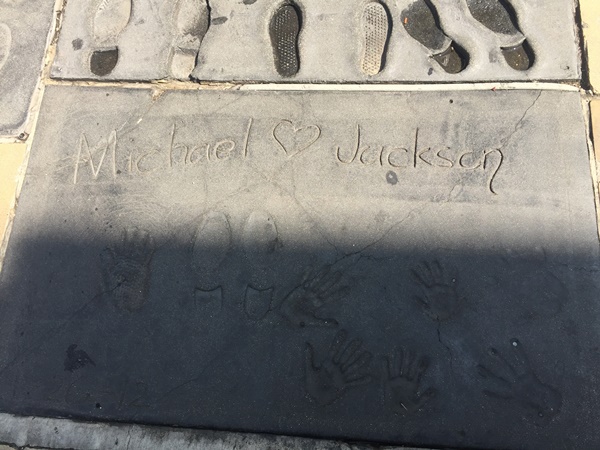 Michael ♡ Jackson